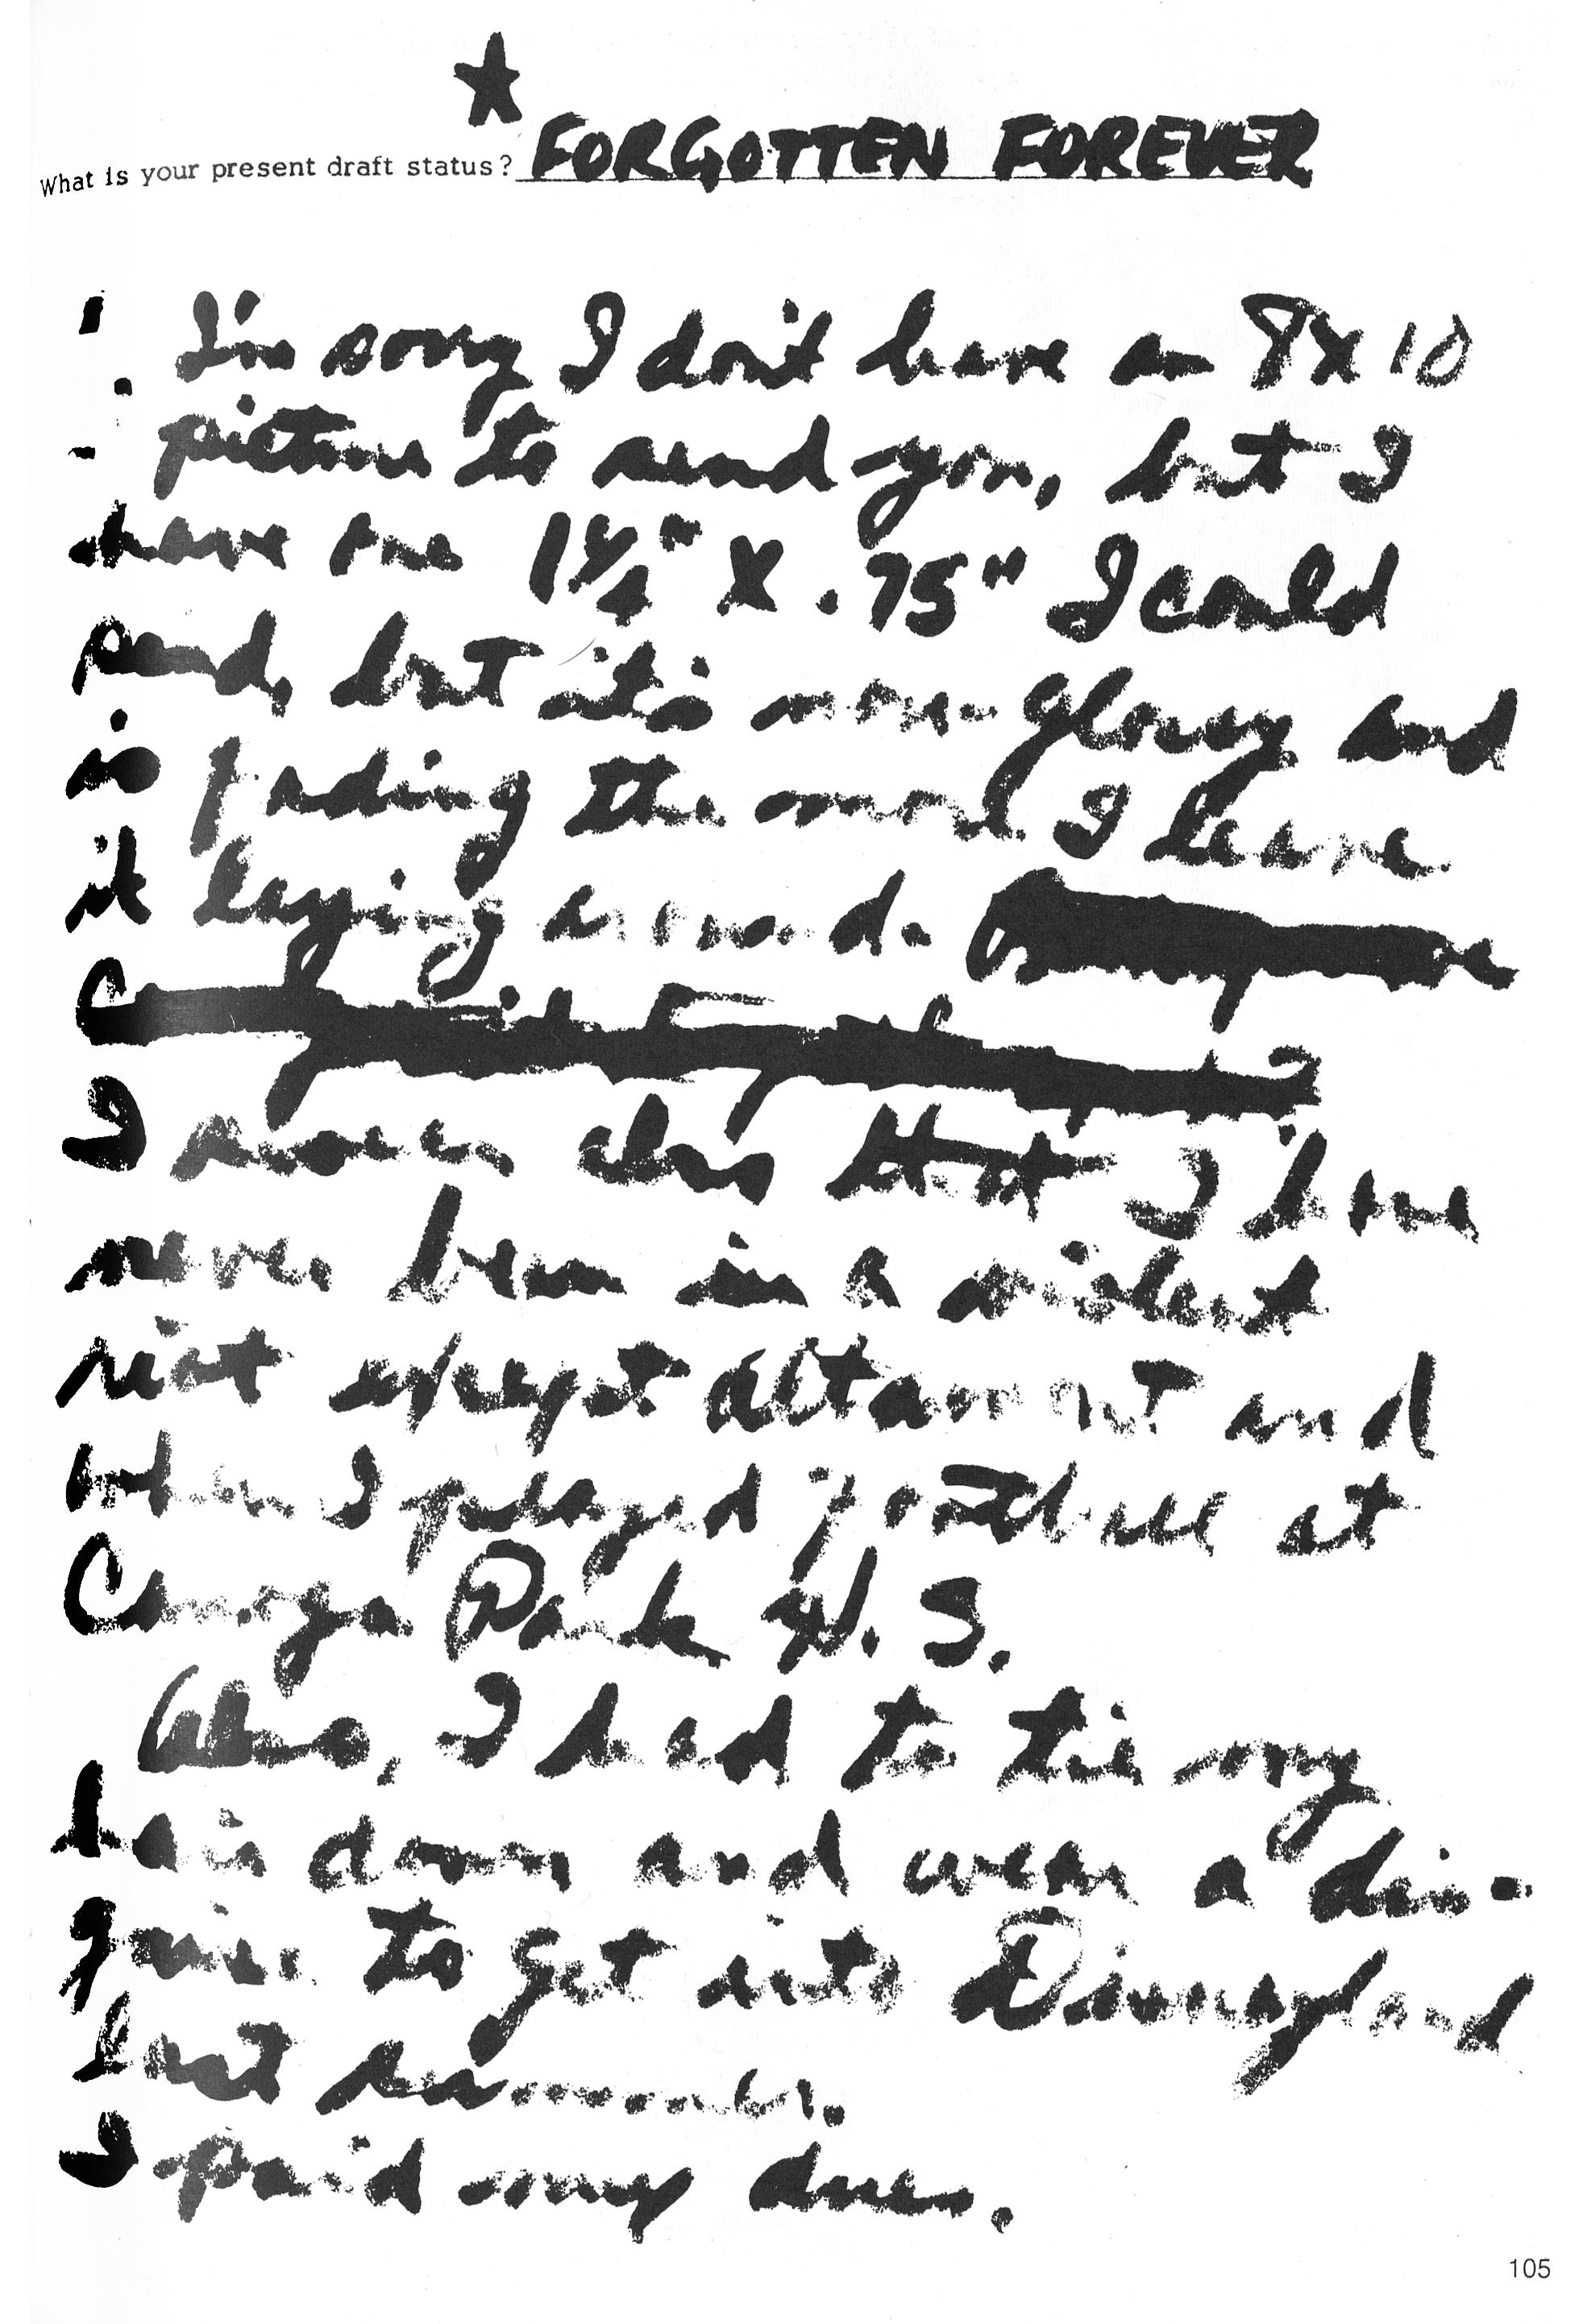 What is your present draft status? FORGOTTEN FOREVER
I'm sorry I don't have an 8x10
picture to send you, but I
have one 1 1/4" X .75" I could
send, but it's non-glossy and
is fading the more I leave
it laying around.
I swear also that I have
never been in a violent
riot except Altamont and
when I played football at
Canoga Park H. S.
Also, I had to tie my
hair down and wear a dis-
guise to get into Disneyland
last summer.
I paid my dues.
105